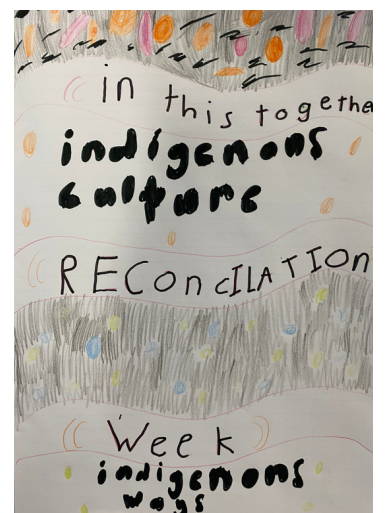 in this togethe
indigenous
culture
REConcILATIOn
Week
indigenous
ways